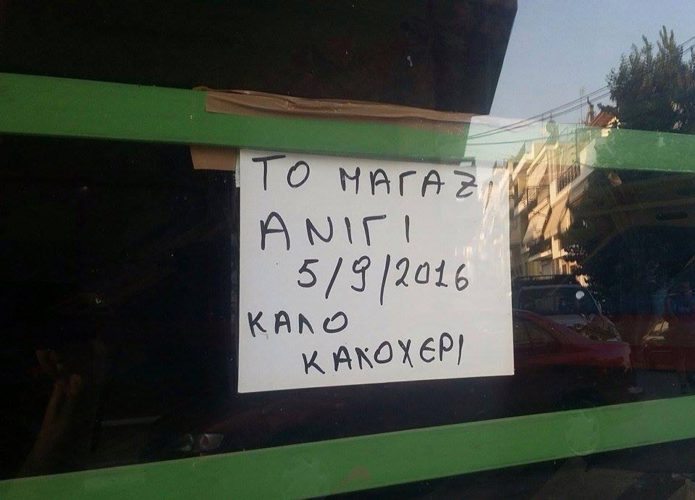 ΤΟ ΜΑΓΑΞ
ΑΝΙΓΙ
5/9/2016
ΚΑΛΟ
ΚΑΛΟΧΕΡΙ